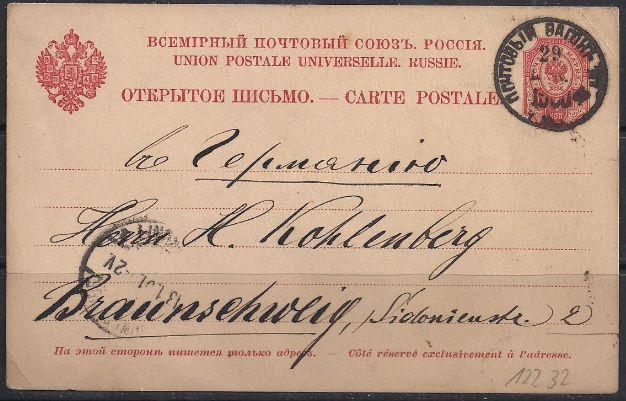 ВСЕМІРНЫЙ ПОЧТОВЫЙ СОЮЗЪ. РОССІЯ.
UNION POSTALE UNIVERSELLE. RUSSIE.
ОТКРЫТОЕ ПИСЬМО. — CARTE POSTALE.
ПОЧТОВЫЙ ВАГОНЪ
29
въ Германію
Herrn H. Kohlenberg
Braunschweig, Sidonienstr. 2
На этой сторонѣ пишется только адресъ. — Côté réservé exclusivement à l'adresse.
122 32